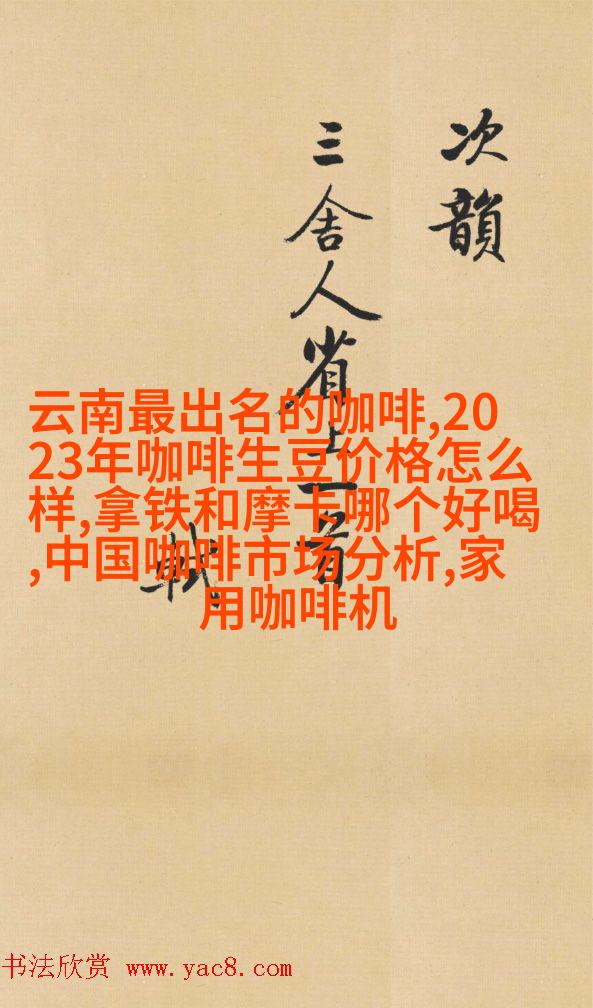 次韻
三舍人省上一首
軾
云南最出名的咖啡,20
23年咖啡生豆价格怎么
样,拿铁和摩卡哪个好喝
,中国咖啡市场分析,家
用咖啡机
书法欣赏 www.yac8.com